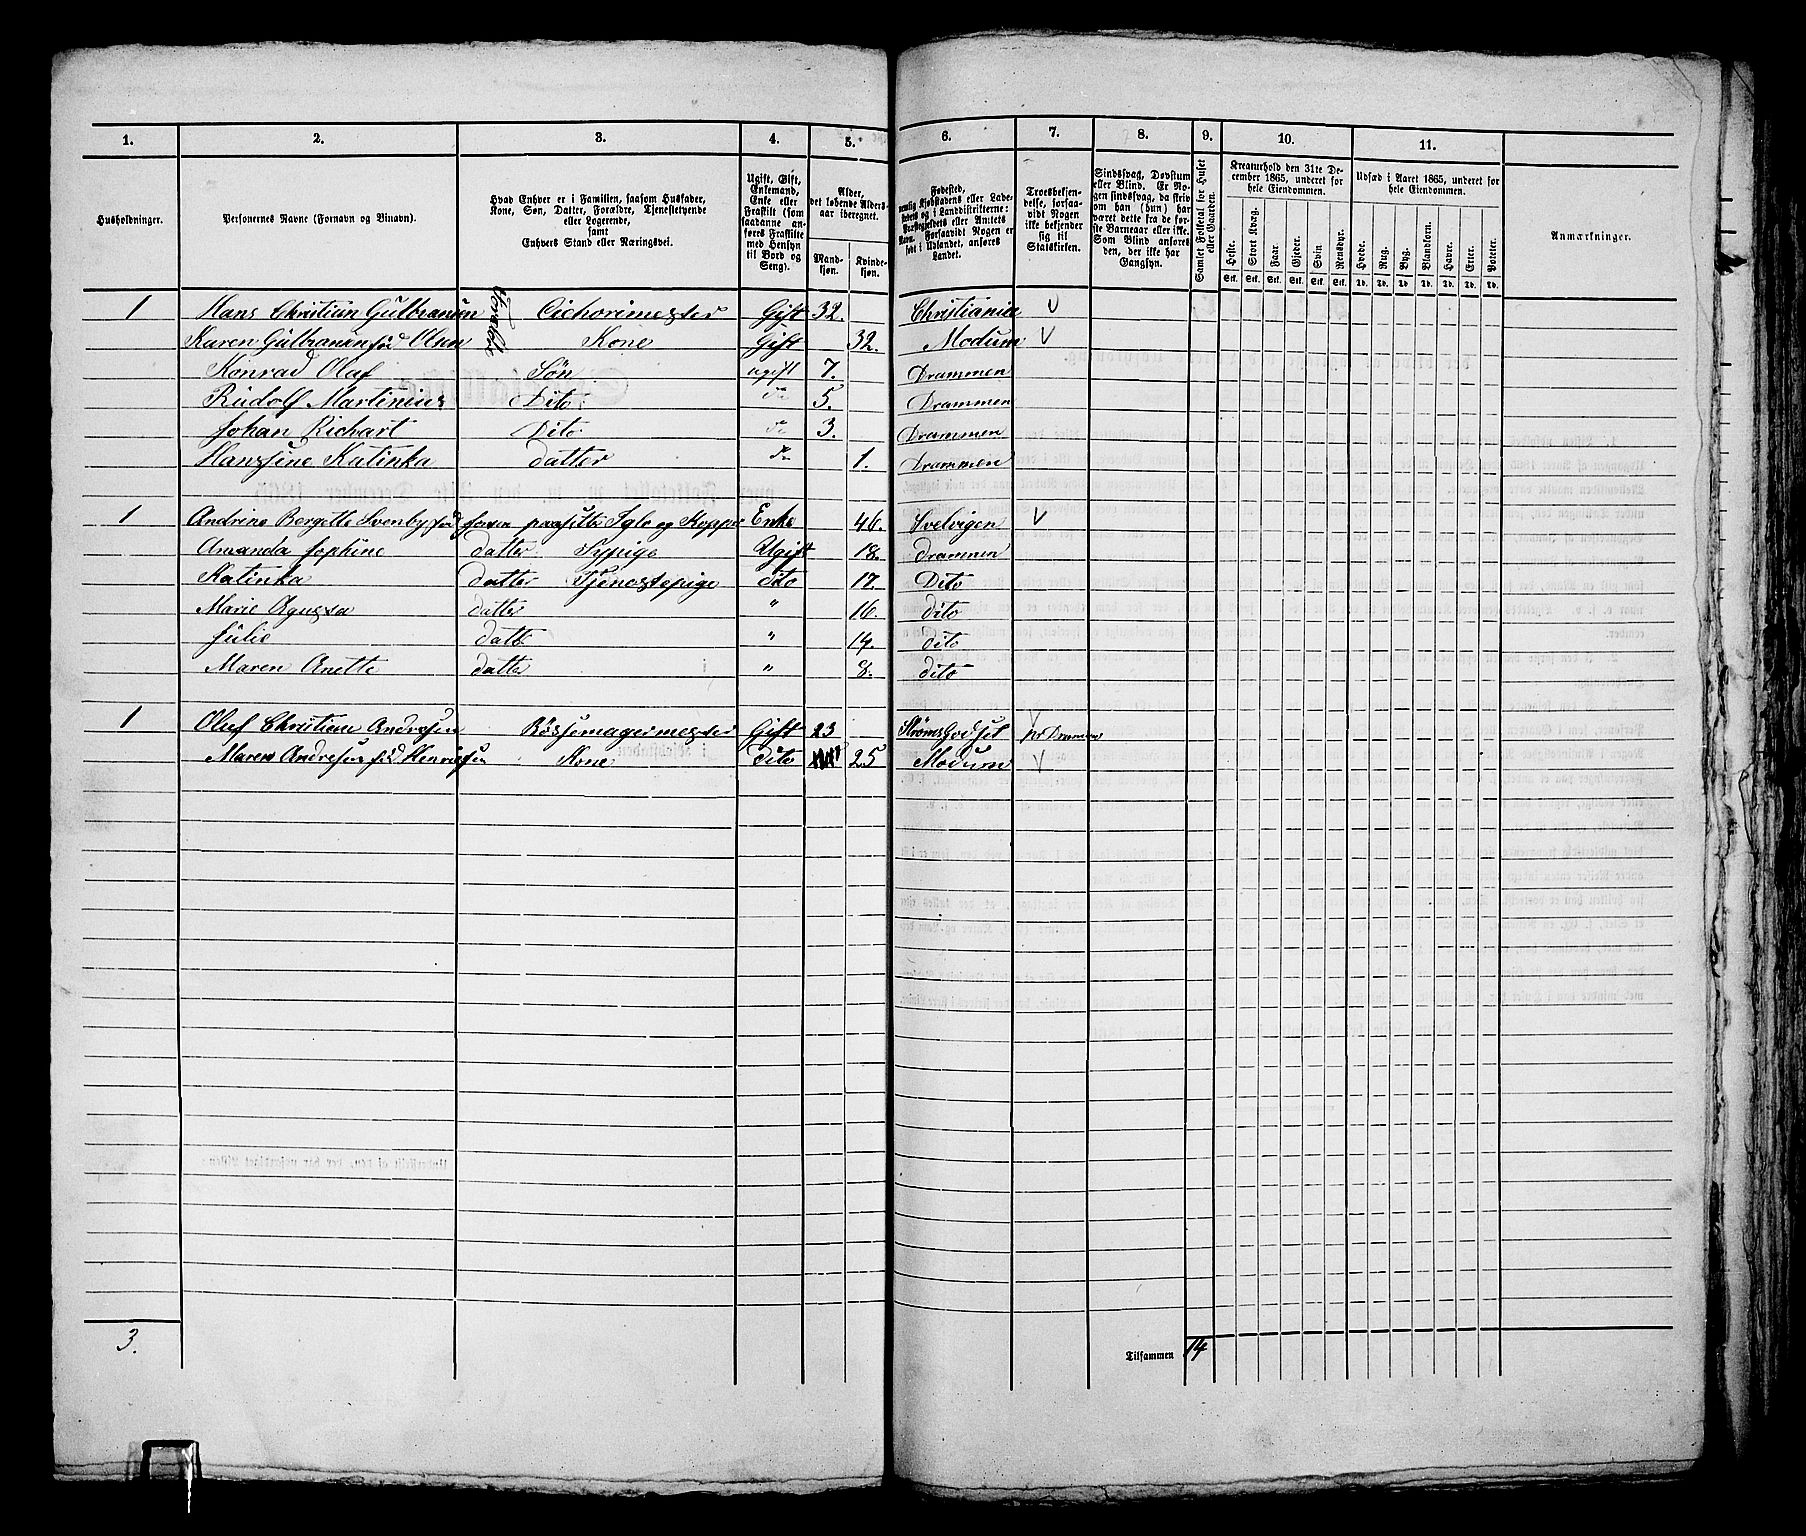 1. 2. 3. 4. 5. 6. 7. 8. 9. 10. 11.
Husholdninger.
Personernes Navne (Fornavn og Binavn).
Hvad Enhver er i Familien, saasom Husfader, Kone, Søn, Datter, Forældre, Tjenestetyende eller Logerende, samt Enhvers Stand eller Næringsvei.
Ugift, Gift, Enkemand, Enke eller Fraskilt (som saadanne anføres Fraskilte med Hensyn til Bord og Seng).
Alder, det løbende Aldersaar iberegnet.
Mandkjøn. Kvindekjøn.
Fødested,
Troesbekjendelse, forsaavidt Nogen ikke bekjender sig til Statskirken.
Sindssvag, Døvstum eller Blind. Er Nogen sindssvag, da skrives om han (hun) har været dette fra de første Barneaar eller ikke. Som Blind anføres den, der ikke har Gangsyn.
Samlet Folketal for Huset eller Gaarden.
Kreaturhold den 31te December 1865, underet for hele Eiendommen.
Heste. Stort Kvæg. Faar. Gjeder. Svin Rensdyr.
Stk. Stk. Stk. Stk. Stk. Stk.
Udsæd i Aaret 1865, underet for hele Eiendommen.
Hvede. Rug. Byg. Blandkorn. Havre. Erter. Poteter.
Td. Td. Td. Td. Td. Td. Td.
Anmærkninger.
1 Hans Christian Gulbransen Cichorimester Gift 32. Christiania
Karen Gulbransen fød Olsen Kone Gift 32. Modum
Konrad Olaf Søn ugift 7. Drammen
Rudolf Martinius Dito 5. Drammen
Johan Richart Dito 3. Drammen
Hansine Katinka datter 1. Drammen
1 Andrine Bergitte Svenby fød paasitte Igle og Kopper Enke 46. Svelvigen
Amanda Sophine datter Sypige Ugift 18. Drammen
Katinka datter Tjenestepige dito 17. Dito
Marie Agussa datter " 16. dito
Julie datter " 14. dito
Maren Anette datter " 8. dito
1 Oluf Christian Andresen Bøssemagermester Gift 23 StrømsGodset pr Drammen
Maren Andresen fød Henriksen Kone Dito 25 Modum
3.
Tilsammen 14